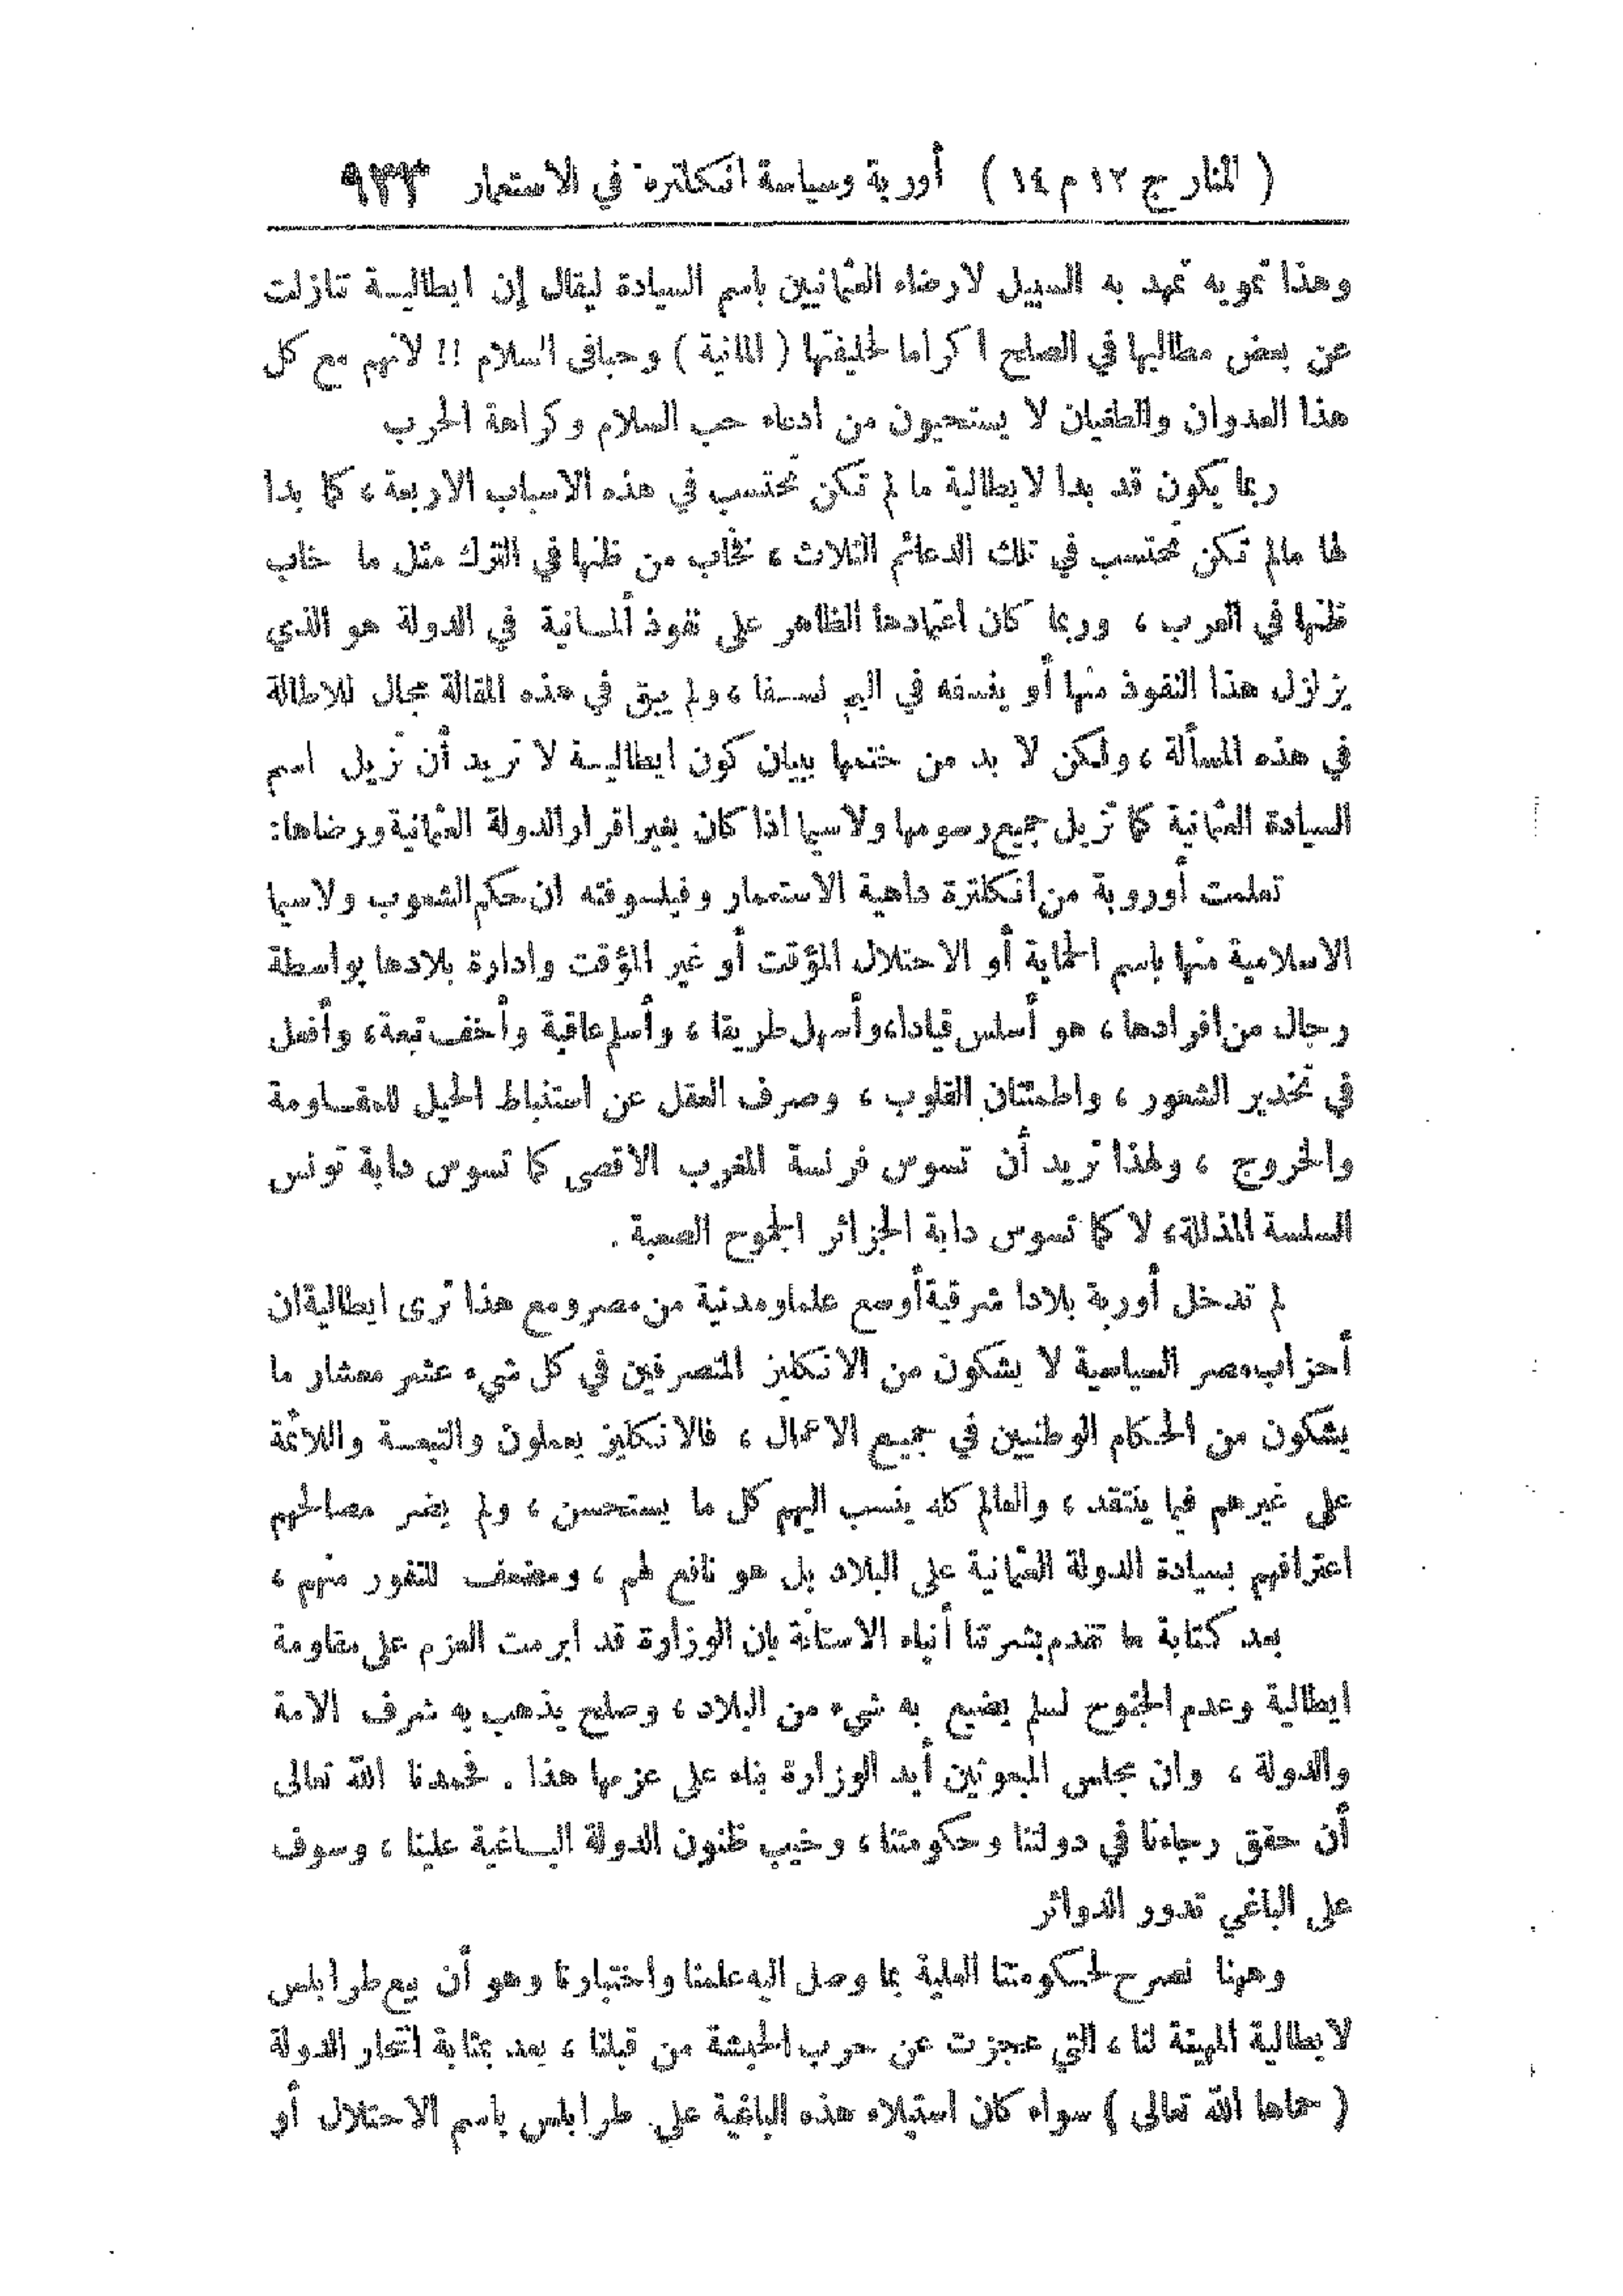 ( المنار ج ١٢ م ١٤ ) أوربة وسياسة انكلترة في الاستعمار ٩٣٣
وهذا تمويه تمهد به السبيل لارضاء العثمانيين باسم السيادة ليقال إن ايطاليـة تنازلت
عن بعض مطالبها في الصلح اكراما لحليفتها ( المانية ) وحبا في السلام !! لانهم مع كل
هذا العدوان والطغيان لا يستحيون من ادعاء حب السلام وكراهة الحرب
ربما يكون قد بدا لايطالية ما لم تكن تحتسب في هذه الاسباب الاربعة ، كما بدا
لها مالم تكن تحتسب في تلك الدعائم الثلاث ، فخاب من ظنها في الترك مثل ما خاب
ظنها في العرب ، وربما كان اعتمادها الظاهر على نفوذ ألمـانية في الدولة هو الذي
يزلزل هذا النفوذ منها أو ينسفه في اليم نسـفا ، ولم يبق في هذه المقالة مجال للاطالة
في هذه المسألة ، ولكن لا بد من ختمها ببيان كون ايطاليـة لا تريد أن تزيل اسم
السيادة العثمانية كما تزيل جميع رسومها ولاسيما اذا كان بغير اقرار الدولة العثمانية ورضاها:
تعلمت أوروبة من انكلترة داهية الاستعمار وفيلسوفته ان حكم الشعوب ولاسيما
الاسلامية منها باسم الحماية أو الاحتلال المؤقت أو غير المؤقت وادارة بلادها بواسطة
رجال من افرادها ، هو أسلس قيادا، وأسهل طريقا ، وأسلم عاقبة وأخف تبعة، وأفعل
في تخدير الشعور ، واطمئنان القلوب ، وصرف العقل عن استنباط الحيل للمقـاومة
والخروج ، ولهذا تريد أن تسوس فرنسة المغرب الاقصى كما تسوس دابة تونس
السلسة المذللة، لا كما تسوس دابة الجزائر الجموح الصعبة .
لم تدخل أوربة بلادا شرقية أوسع علما ومدنية من مصر ومع هذا ترى ايطالية ان
أحزاب مصر السياسية لا يشكون من الانكليز المتصرفين في كل شيء عشر معشار ما
يشكون من الحكام الوطنيين في جميـع الاعمال ، فالانكليز يعملون والتبعـة واللائمة
على غيرهم فيما ينتقد ، والعالم كله ينسب اليهم كل ما يستحسن ، ولم يضر مصالحهم
اعترافهم بسيادة الدولة العثمانية على البلاد بل هو نافع لهم ، ومضعف للنفور منهم ،
بعد كتابة ما تقدم بشرتنا أنباء الاستانة بان الوزارة قد ابرمت العزم على مقاومة
ايطالية وعدم الجنوح لسلم يضيع به شيء من البلاد ، وصلح يذهب به شرف الامة
والدولة ، وان مجلس المبعوثين أيد الوزارة بناء على عزمها هذا . فحمدنا الله تعالى
أن حقق رجاءنا في دولتنا وحكومتنا ، وخيب ظنون الدولة البـاغية علينا ، وسوف
على الباغي تدور الدوائر
وههنا نصرح لحكومتنا العلية بما وصل اليه علمنا واختبارنا وهو أن بيع طرابلس
لايطالية المهينة لنا ، التي عجزت عن حرب الحبشة من قبلنا ، يعد بمثابة انتحار الدولة
( حماها الله تعالى ) سواء كان استيلاء هذه الباغية على طرابلس باسم الاحتلال أو